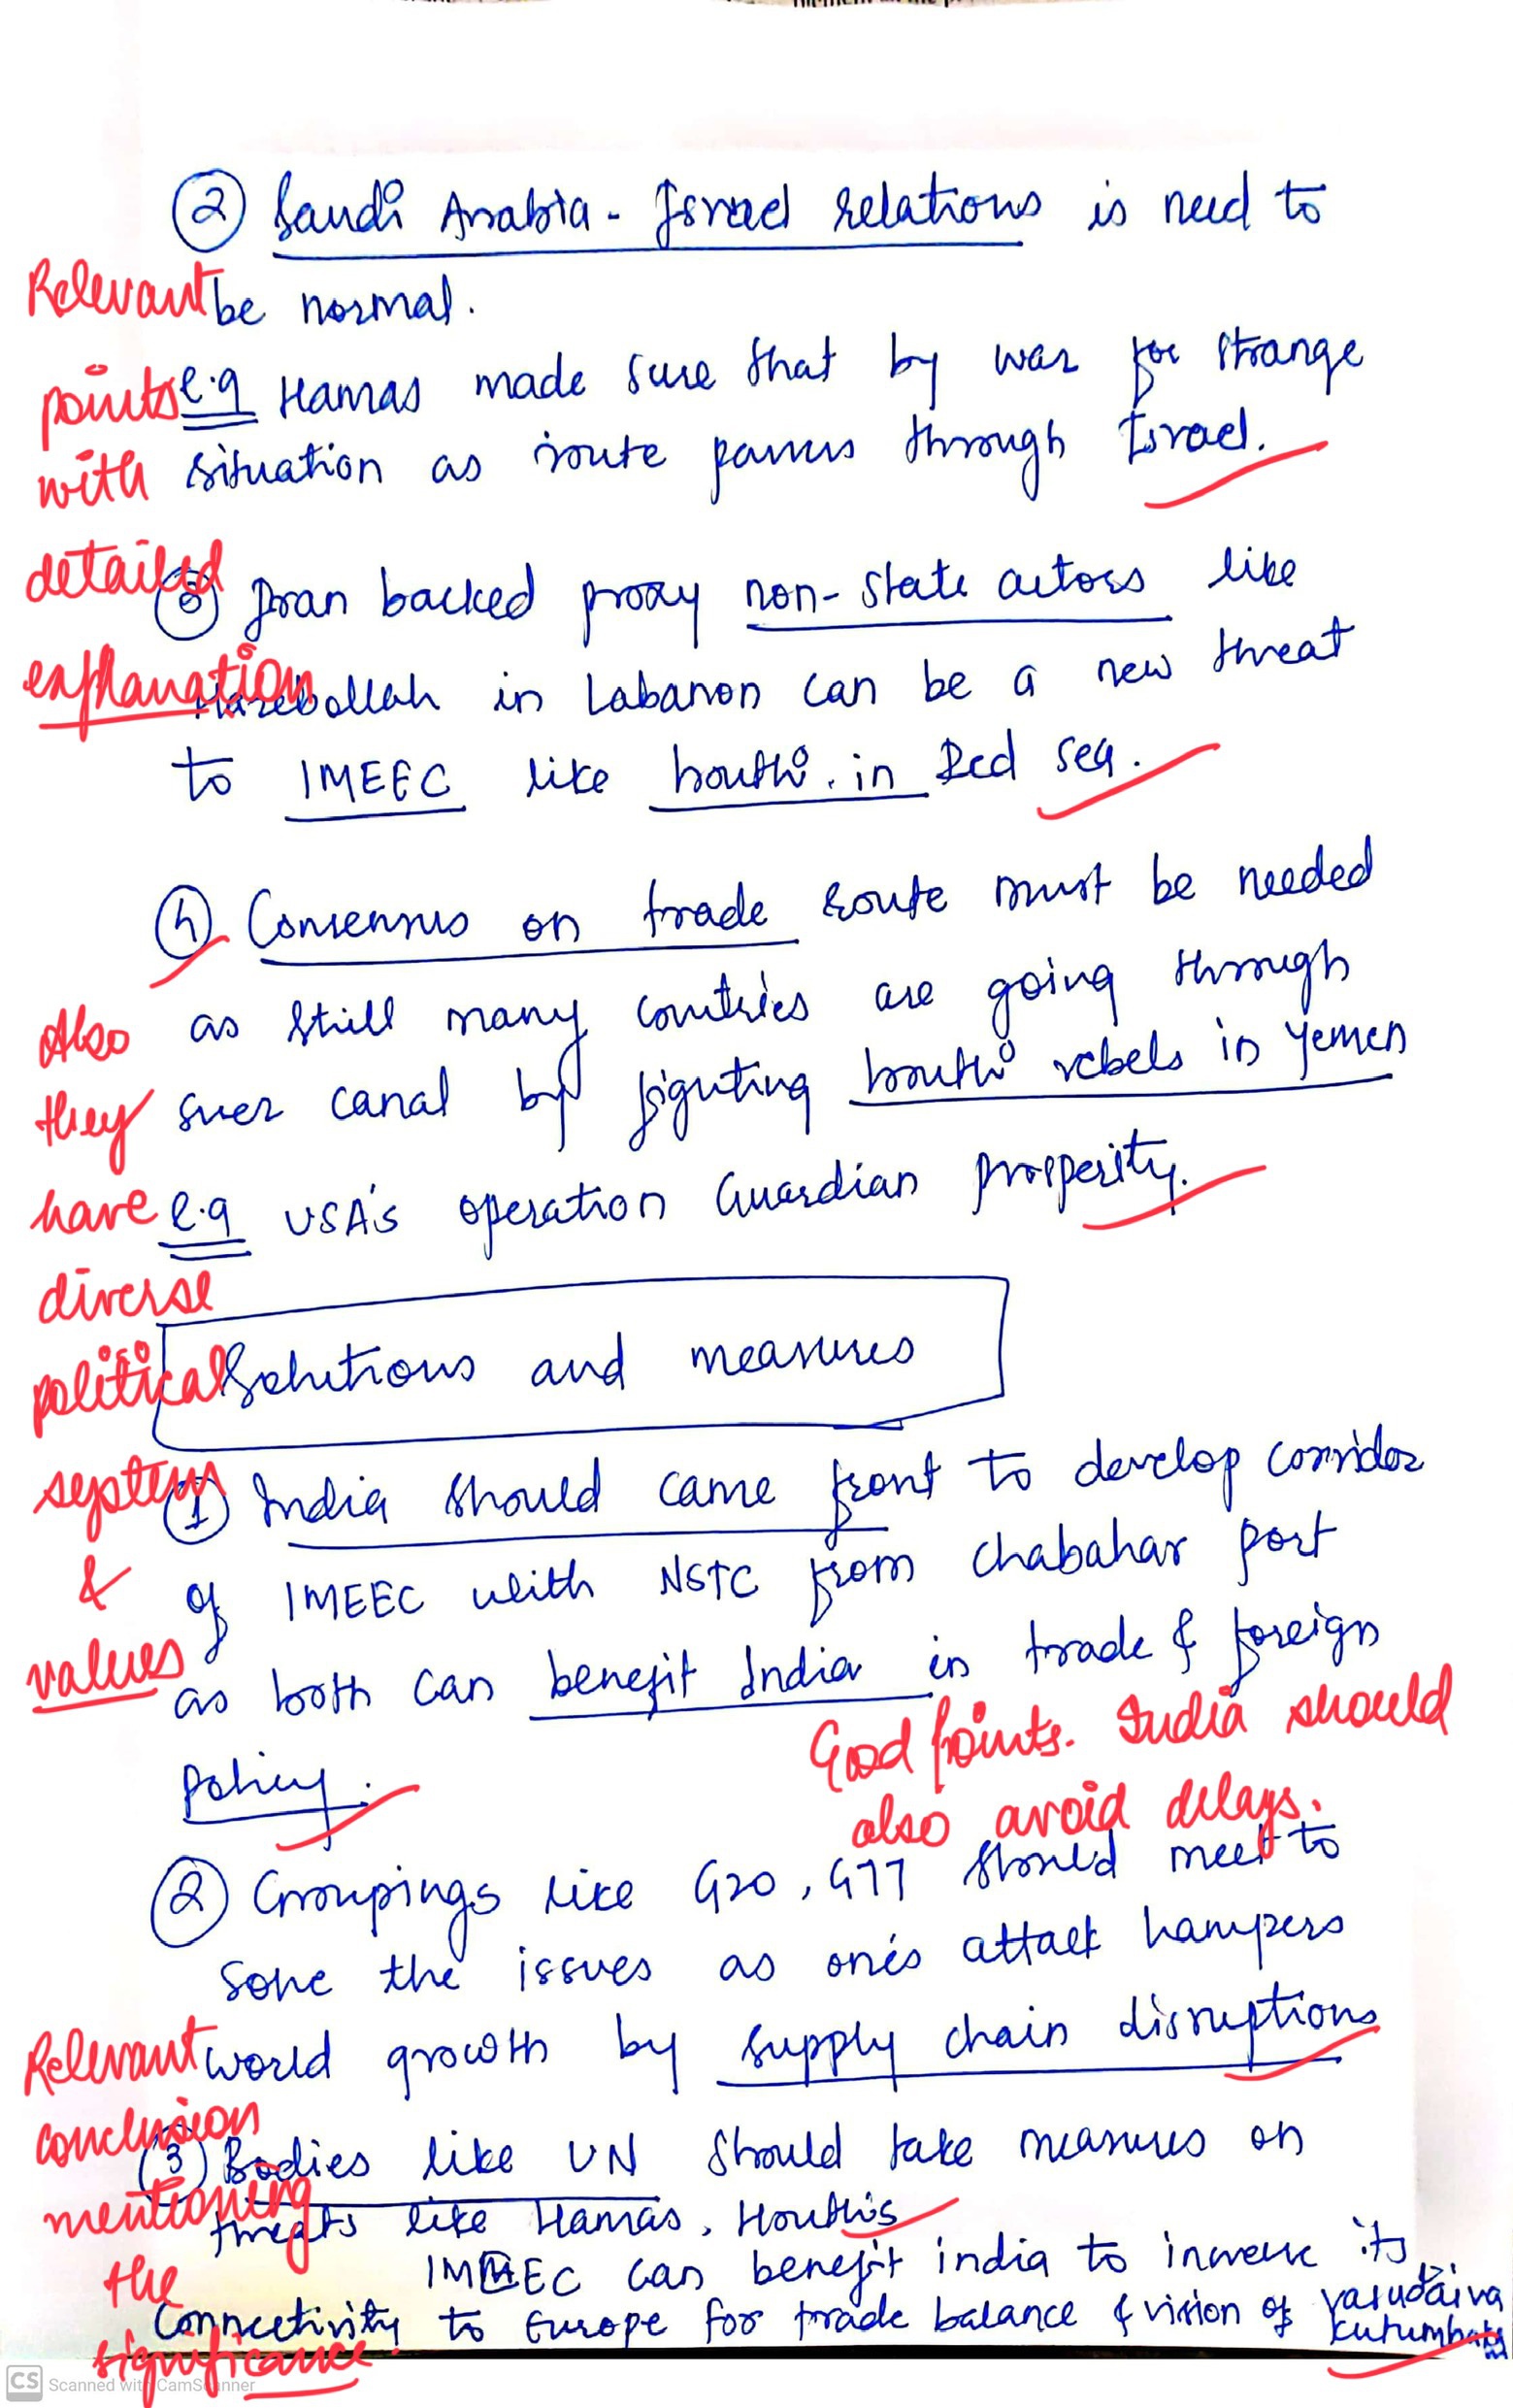 ② Saudi Arabia - Israel relations is need to
Relevant be normal.
points e.g Hamas made sure that by war for strange
with situation as route passes through Israel.
detailed
③ Iran backed proxy non-state actors like
explanation Hazebollah in Labanon can be a new threat
to IMEEC like houthi in Red sea.
④ Consensus on trade route must be needed
Also as still many countries are going through
they suez canal by fighting houthi rebels in Yemen
have e.g USA's operation Guardian prosperity.
diverse
political Solutions and measures
system ① India should came front to develop corridor
& of IMEEC with NSTC from chabahar port
values as both can benefit India in trade & foreign
Good points. India should
policy.
also avoid delays.
② Groupings like G20, G77 should meet to
solve the issues as one's attack hampers
Relevant world growth by supply chain disruptions
conclusion
③ Bodies like UN should take measures on
mentioning
threats like Hamas, Houthis
the IMEEC can benefit india to increase its
connectivity to Europe for trade balance & vision of vasudaiva
kutumbakam
significance.
CS Scanned with CamScanner